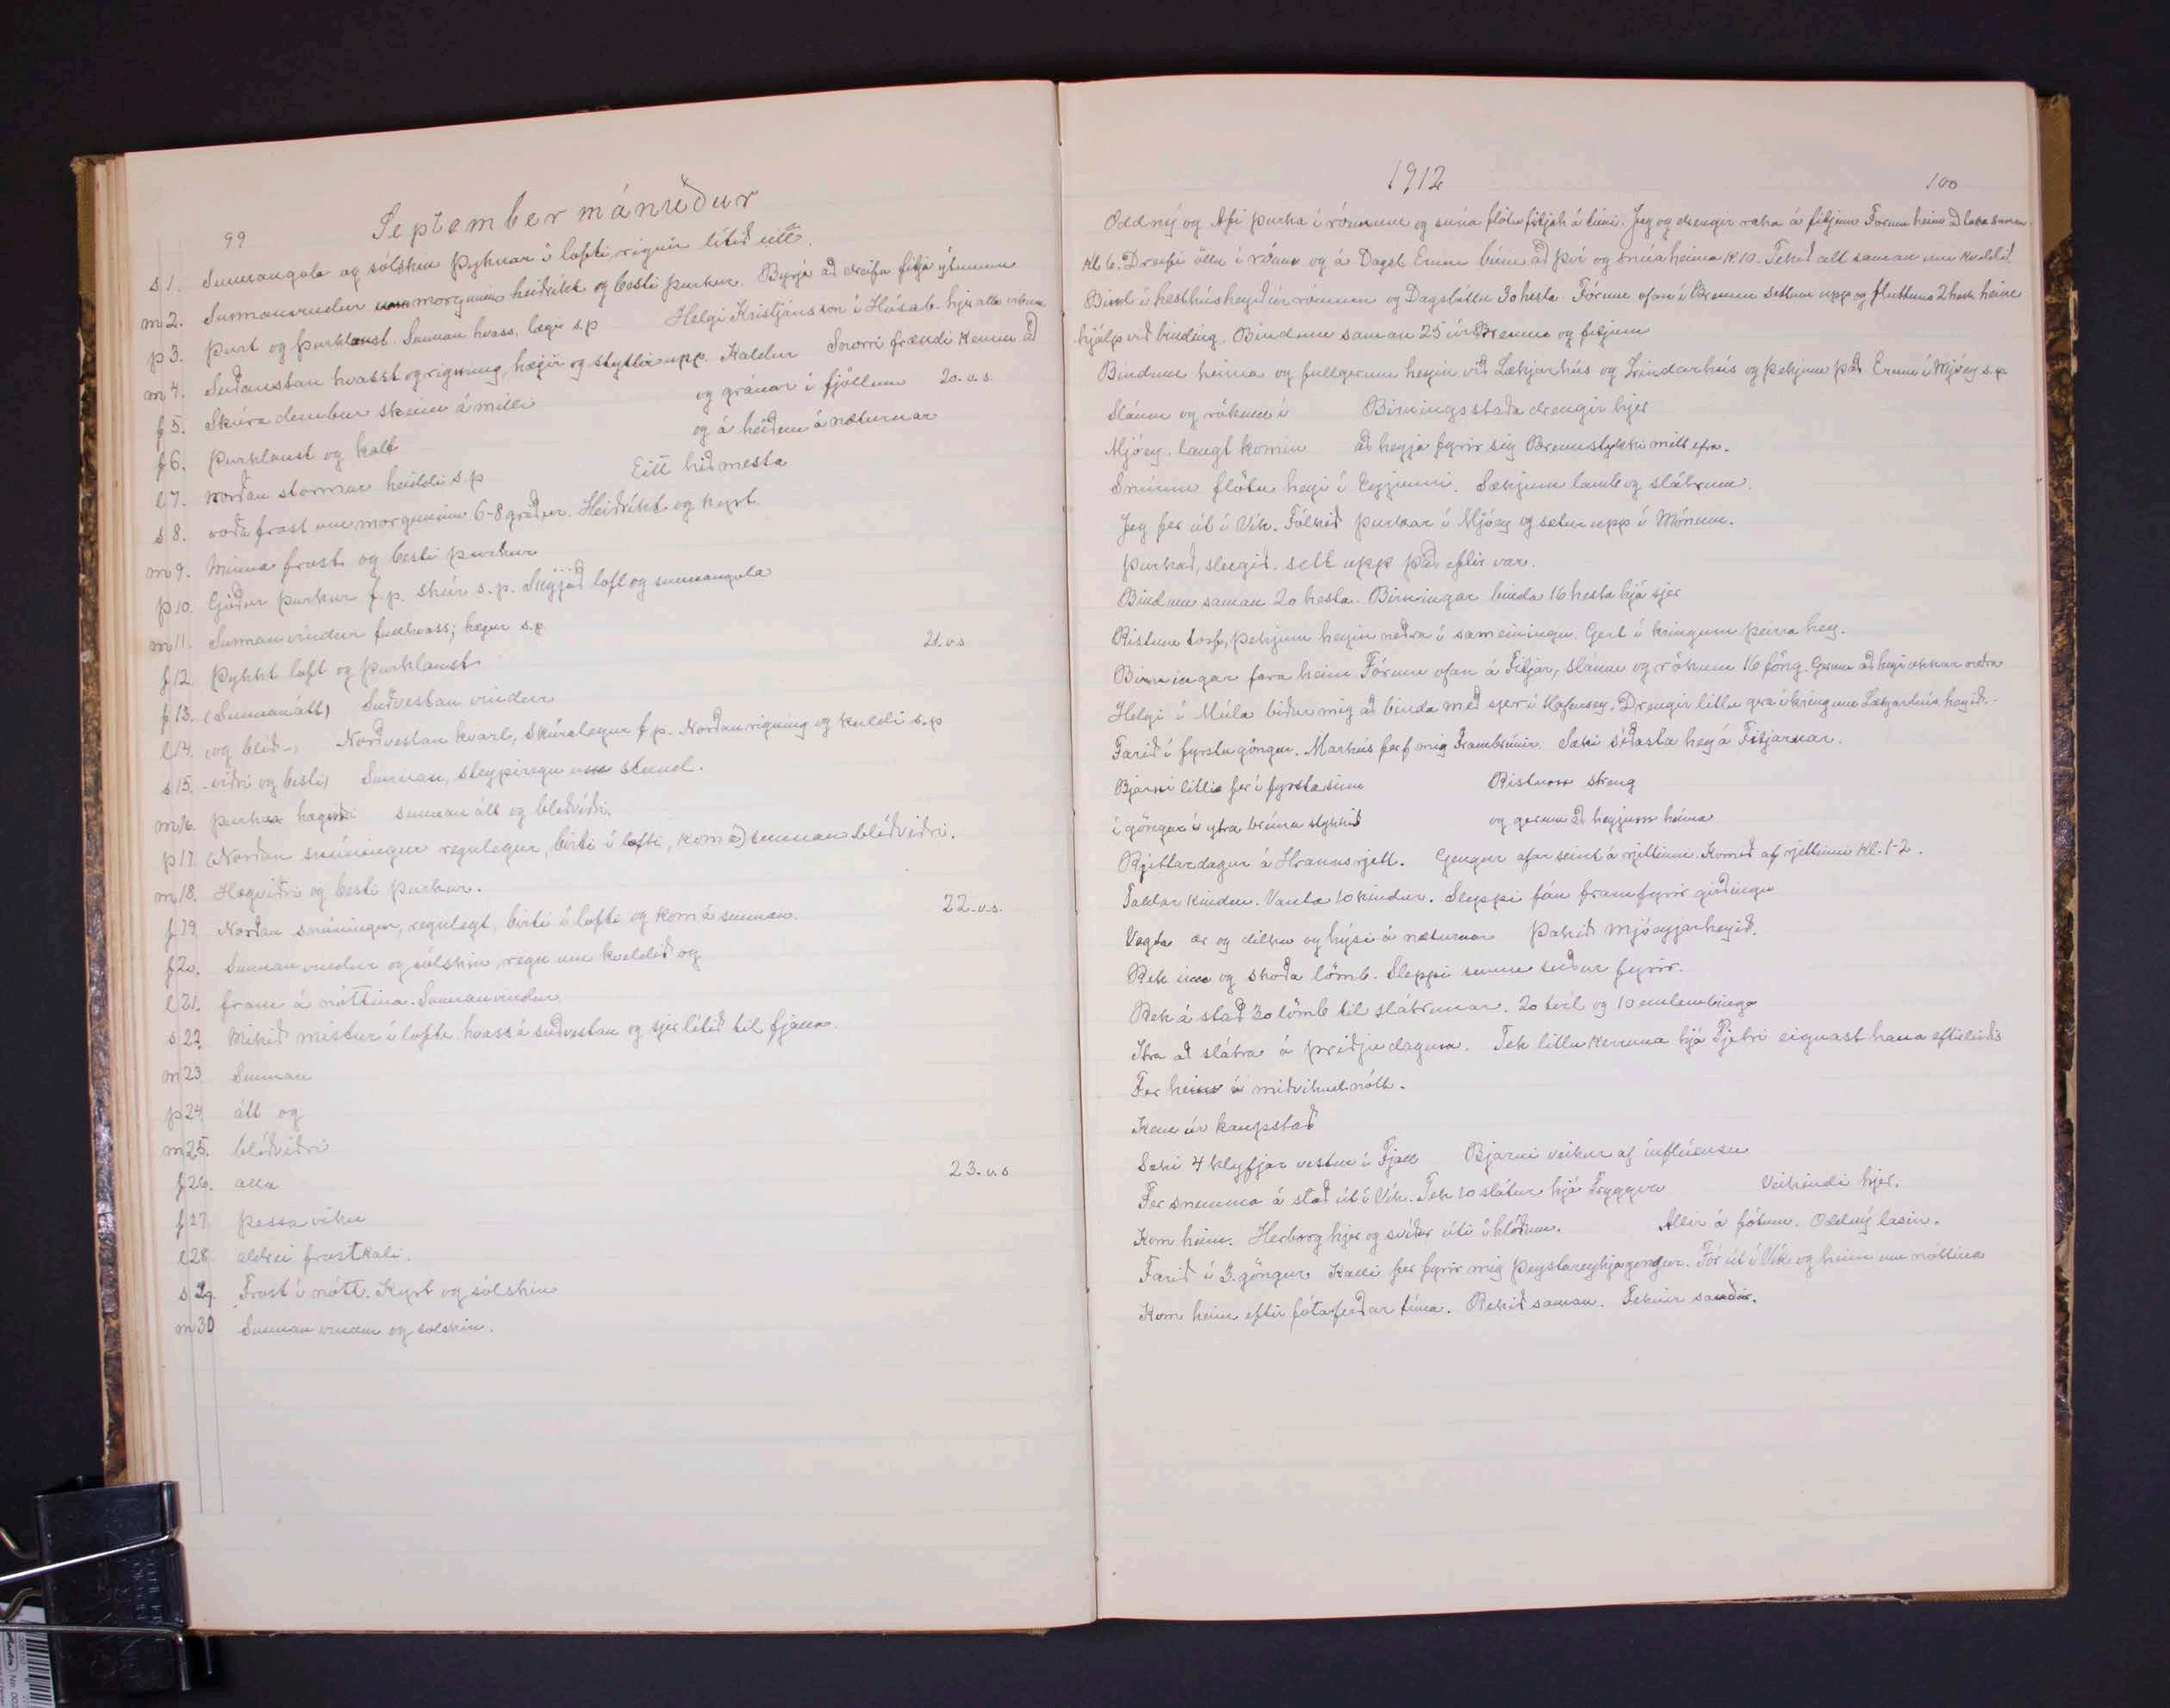 99
September mánuður
s 1. Sunnangola og sólskin þyknar í lofti, rignir lítið eitt.
m 2. Sunnanvindur morguninn heiðrikt og besti þurkur. Byrja að dreifa
þ 3. Þurt og þurklaust. Sunnan hvass, lægir s.p Helgi Kristjánsson í Húsab. hjer alla vikuna
m 4. Suðaustan hvasst og rigning, hægir og styttir upp. Kaldur Snorri frændi kemur að
f 5. Skúra dembur skein á milli og gránar í fjöllum 20. v.s.
f 6. Þurklaust og kalt og á heiðum á næturnar
l 7. Norðan stormur heiddi s.p Eitt hið mesta
s 8. voða frost um morguninn 6-8 gráður. Heiðríkt og kyrt
m 9. Minna frost og besti þurkur
þ 10. Góður þurkur f.p. skúr s.p. Skýjað loft og sunnangola
m 11. Sunnanvindur fullhvass; hægur s.p
f 12. Þykkt loft og þurklaust 21. v.s
f 13. (Sunnanátt) Suðvestan vindur
l 14. og blíð-, Norðvestan kvart, Skúralegur f.p. Norðanrigning og kuldi s.p
s 15. -viðri og besti) Sunnan, steypiregn um stund.
m 16. þurkur hægviðri sunnan átt og blíðviðri.
þ 17. (Norðan snúningur regnlegur, birti í lofti, kom á) sunnan blíðviðri.
m 18. Hægviðri og besti þurkur.
f 19. Norðan snúningur, regnlegt, birti í lofti og kom á sunnan. 22. v.s.
f 20. Sunnan vindur og sólskin, regn um kveldið og
l 21. fram á nóttina. Sunnanvindur
s 22. Mikið mistur í lofti hvass á suðvestan og sjer lítið til fjalla.
m 23. Sunnan
þ 24. átt og
m 25. blíðviðri
f 26. alla 23. v.s
f 27. þessa viku
l 28. aldrei frostkali.
s 29. Frost í nótt. Kyrt og sólskin
m 30 Sunnan vindur og sólskin.
1912
100
Oddný og Afi þurka í rónum og snúa flötu á túni. Jeg og drengir raka á fitjum Förum heim að taka saman
kl 6. Dreifi öllu í rónum og á Dagsl. Erum búin að því og snúa heima kl 10. Tekið alt saman um kveldið
Bind í hesthúsheyið úr rónum og Dagsláttu 30 hesta. Förum ofan í Brennu settum upp og fluttum 2 hesta heim
hjálp við binding. Bindum saman 25 úr Brennu og fitjum
Bindum heima og fullgerum heyin við Lækjarhús og Lindarhús og þekjum það Erum í Mjóey s.p
Sláum og rökum í Birningsstaða drengir hjer
Mjóey. langt komin að heyja fyrir sig Brennustykki mitt efra.
Snúum flötu heyi í Eyjunni. Sækjum lamb og slátrum.
Jeg fer út í Vík. Fólkið þurkar í Mjóey og setur upp í Mónum.
Þurkað, slegið, sett upp það eftir var.
Bindum saman 20 hesta. Birningar binda 16 hesta hjá sjer
Ristum torf, þekjum heyin neðra í sameiningu. Gert í kringum þeirra hey.
Birningar fara heim Förum ofan á Fitjar, sláum og rökum 16 föng. Gerum að heyi okkar neðra
Helgi í Múla biður mig að binda með sjer í Hafursey. Drengir litlu gera í kringum Lækjarhús heyið.
Farið í fyrstu göngur. Markús fer f. mig Frambrúnir. Sæki síðasta hey á Fitjarnar.
Bjarni litli fer í fyrsta sinn Ristum streng
í göngur í ytra brúna stykkið og gerum að heyjum heima
Rjettardagur á Hraunsrjett. Gengur afar seint á rjettinni. Komið af rjettinni kl. 1-2.
Taldar kindur. Vanta 10 kindur. Sleppi fán fram fyrir girðingu
Vagta ær og dilka og hýsi á næturnar Þakið Mjóeyjarheyið.
Rek inn og skoða lömb. Sleppi sumu suður fyrir.
Rek á stað 30 lömb til slátrunar. 20 tvíl og 10 einlembinga
að slátra á þriðjudaginn. Tek litlu kerruna hjá Pjetri eignast hana eftirleiðis
Fer heim á miðvikud.nótt.
Kem úr kaupstað
Sæki 4 klyfjar vestur í Fjall Bjarni veikur af influensu
Fer snemma á stað út í Vík. Tek 10 slátur hjá Tryggva Veikindi hjer.
Kom heim. Herborg hjer og svíður úti í hlóðum. Allir á fótum. Oddný lasin.
Farið í 3. göngur Kalli fer fyrir mig Þeystareykjagöngur. Fór út í Vík og heim um nóttina
Kom heim eftir fótaferðar tíma. Rekið saman. Teknir sauðir.